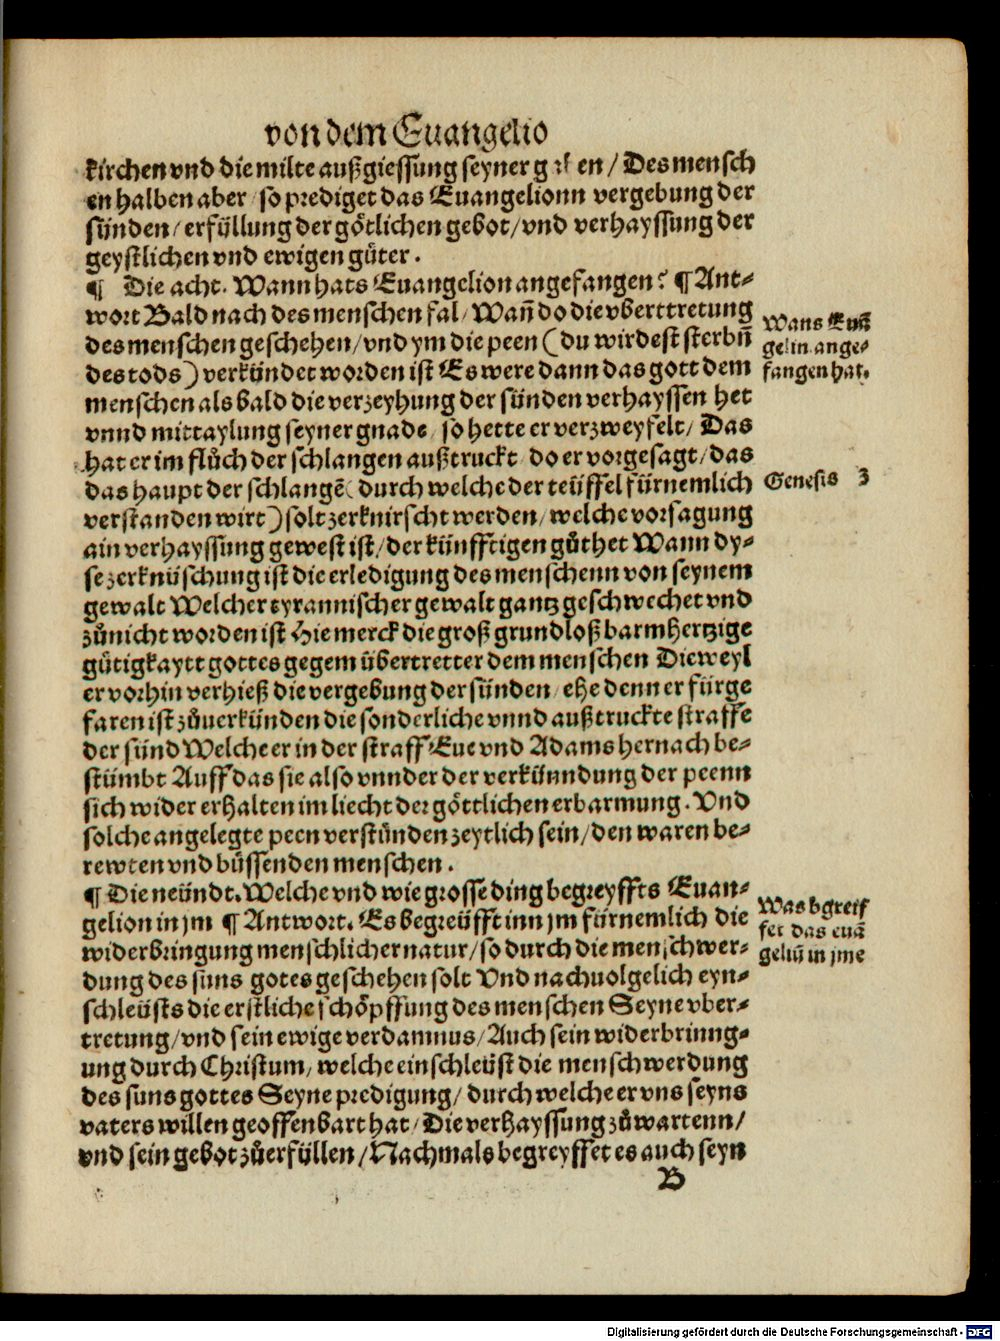 von dem Euangelio
kirchen vnd die milte außgiessung seyner / Des mensch
en halben aber / so prediget das Euangelionn vergebung der
sünden / erfyllung der götlichen gebot / vnd verhayssung der
geystlichen vnd ewigen güter.
¶ Die acht. Wann hats Euangelion angefangen? ¶ Ant⸗
wort Bald nach des menschen fal / Wañ do die vberttretung
des menschen geschehen / vnd ym die peen (du wirdest sterbñ
des tods) verkündet worden ist Es were dann das gott dem
menschen als bald die verzeyhung der sünden verhayssen het
vnnd mittaylung seyner gnade / so hette er verzweyfelt / Das
hat er im flůch der schlangen außtruckt do er vorgesagt / das
das haupt der schlangē (durch welche der teüffel fürnemlich
verstanden wirt) solt zerknirscht werden / welche vorsagung
ain verhayssung gewest ist / der künfftigen gůthet Wann dy⸗
se zerknüschung ist die erledigung des menschenn von seynem
gewalt Welcher tyrannischer gewalt gantz geschwechet vnd
zůnicht worden ist Hie merck die groß grundloß barmhertzige
gütigkaytt gottes gegem übertretter dem menschen Dieweyl
er vorhin verhieß die vergebung der sünden / ehe denn er fürge
faren ist zůuerkünden die sonderliche vnnd außtruckte straffe
der sünd Welche er in der straff Eue vnd Adams hernach be⸗
stümbt Auff das sie also vnnder der verkünndung der peenn
sich wider erhalten im liecht der göttlichen erbarmung. Vnd
solche angelegte peen verstünden zeytlich sein / den waren be⸗
rewten vnd büssenden menschen.
¶ Die neündt. Welche vnd wie grosse ding begreyffts Euan⸗
gelion in jm ¶ Antwort. Es begreüfft inn jm fürnemlich die
widerbringung menschlicher natur / so durch die menschwer⸗
dung des suns gotes geschehen solt Vnd nachuolgelich eyn⸗
schleüsts die erstliche schöpffung des menschen Seyne vber⸗
tretung / vnd sein ewige verdamnus / Auch sein widerbrinng⸗
ung durch Christum / welche einschleüst die menschwerdung
des suns gottes Seyne predigung / durch welche er vns seyns
vaters willen geoffenbart hat / Die verhayssung zůwartenn /
vnd sein gebot zůerfüllen / Nachmals begreyffet es auch seyn
B
Wans Euā
gelin ange⸗
fangen hat.
Genesis 3
Was bgreif
fet das euā
geliū in jme
Digitalisierung gefördert durch die Deutsche Forschungsgemeinschaft - DFG